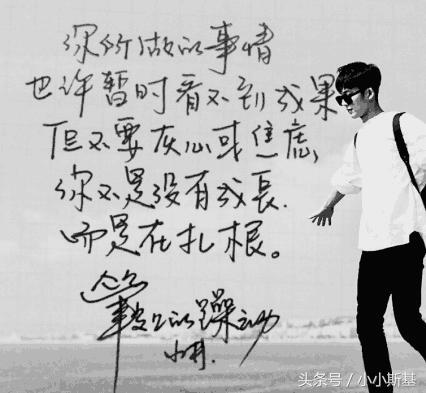 你所做的事情
也许暂时看不到成果
但不要灰心或焦虑,
你不是没有成長.
而是在扎根。
的躁动
头条号 / 小小斯基